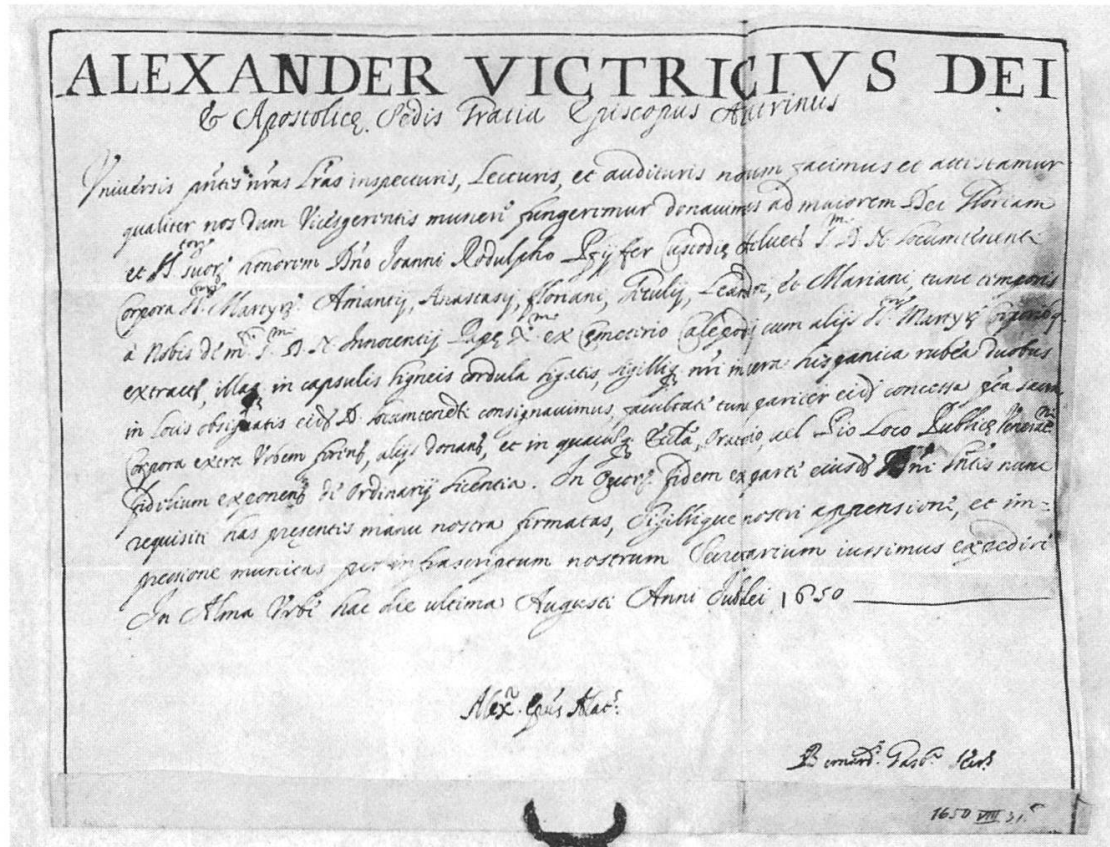 ALEXANDER VICTRICIVS DEI
& Apostolicę Sedis Gratia Episcopus Alatrinus
Vniversis pñtes ñras Lras inspecturis, Lecturis, et audituris notum facimus et attestamur
qualiter nos dum Vicesgerentis munere fungeremur donauimus ad maiorem Dei Gloriam
et SS. suorũ honorem Dño Joanni Rodulpho Pfyffer Custodię Heluet. S.mi D. N. Locumtenenti
Corpora SS. Martyrũ Amantij, Anastasij, Floriani, Leandri, et Mariani, tunc temporis
à Nobis de S. D. N. Innocentij Papę X. ex Cęmeterio Calepodij cum alijs SS. Martyrũ Corporibq
extracta, illaq in capsulis ligneis cordula ligatis, sigilliq nri in cera hispanica rubea duobus
in locis obsignatis eidẽ D. Locumtenenti consignauimus, facultate tunc pariter eidẽ concessa pta sacra
Corpora extra Vrbem ferendi, alijs donandi, et in quacũq Eccla, Oratorio, uel Pio Loco Publicę Venerat.
fidelium exponendi de Ordinarij licentia. In Quorũ fidem ex parte eiusdẽ Dñi Lñtis nunc
requisiti has pręsentes manu nostra firmatas, Sigillique nostri appensione, et im=
pressione munitas per infrascriptum nostrum Secretarium iussimus expediri
In Alma Vrbe hac die ultima Augusti Anni Jubilei 1650
Alex.r Epũs Alat.s
Bernard.s Secr.s
1650 VIII 31